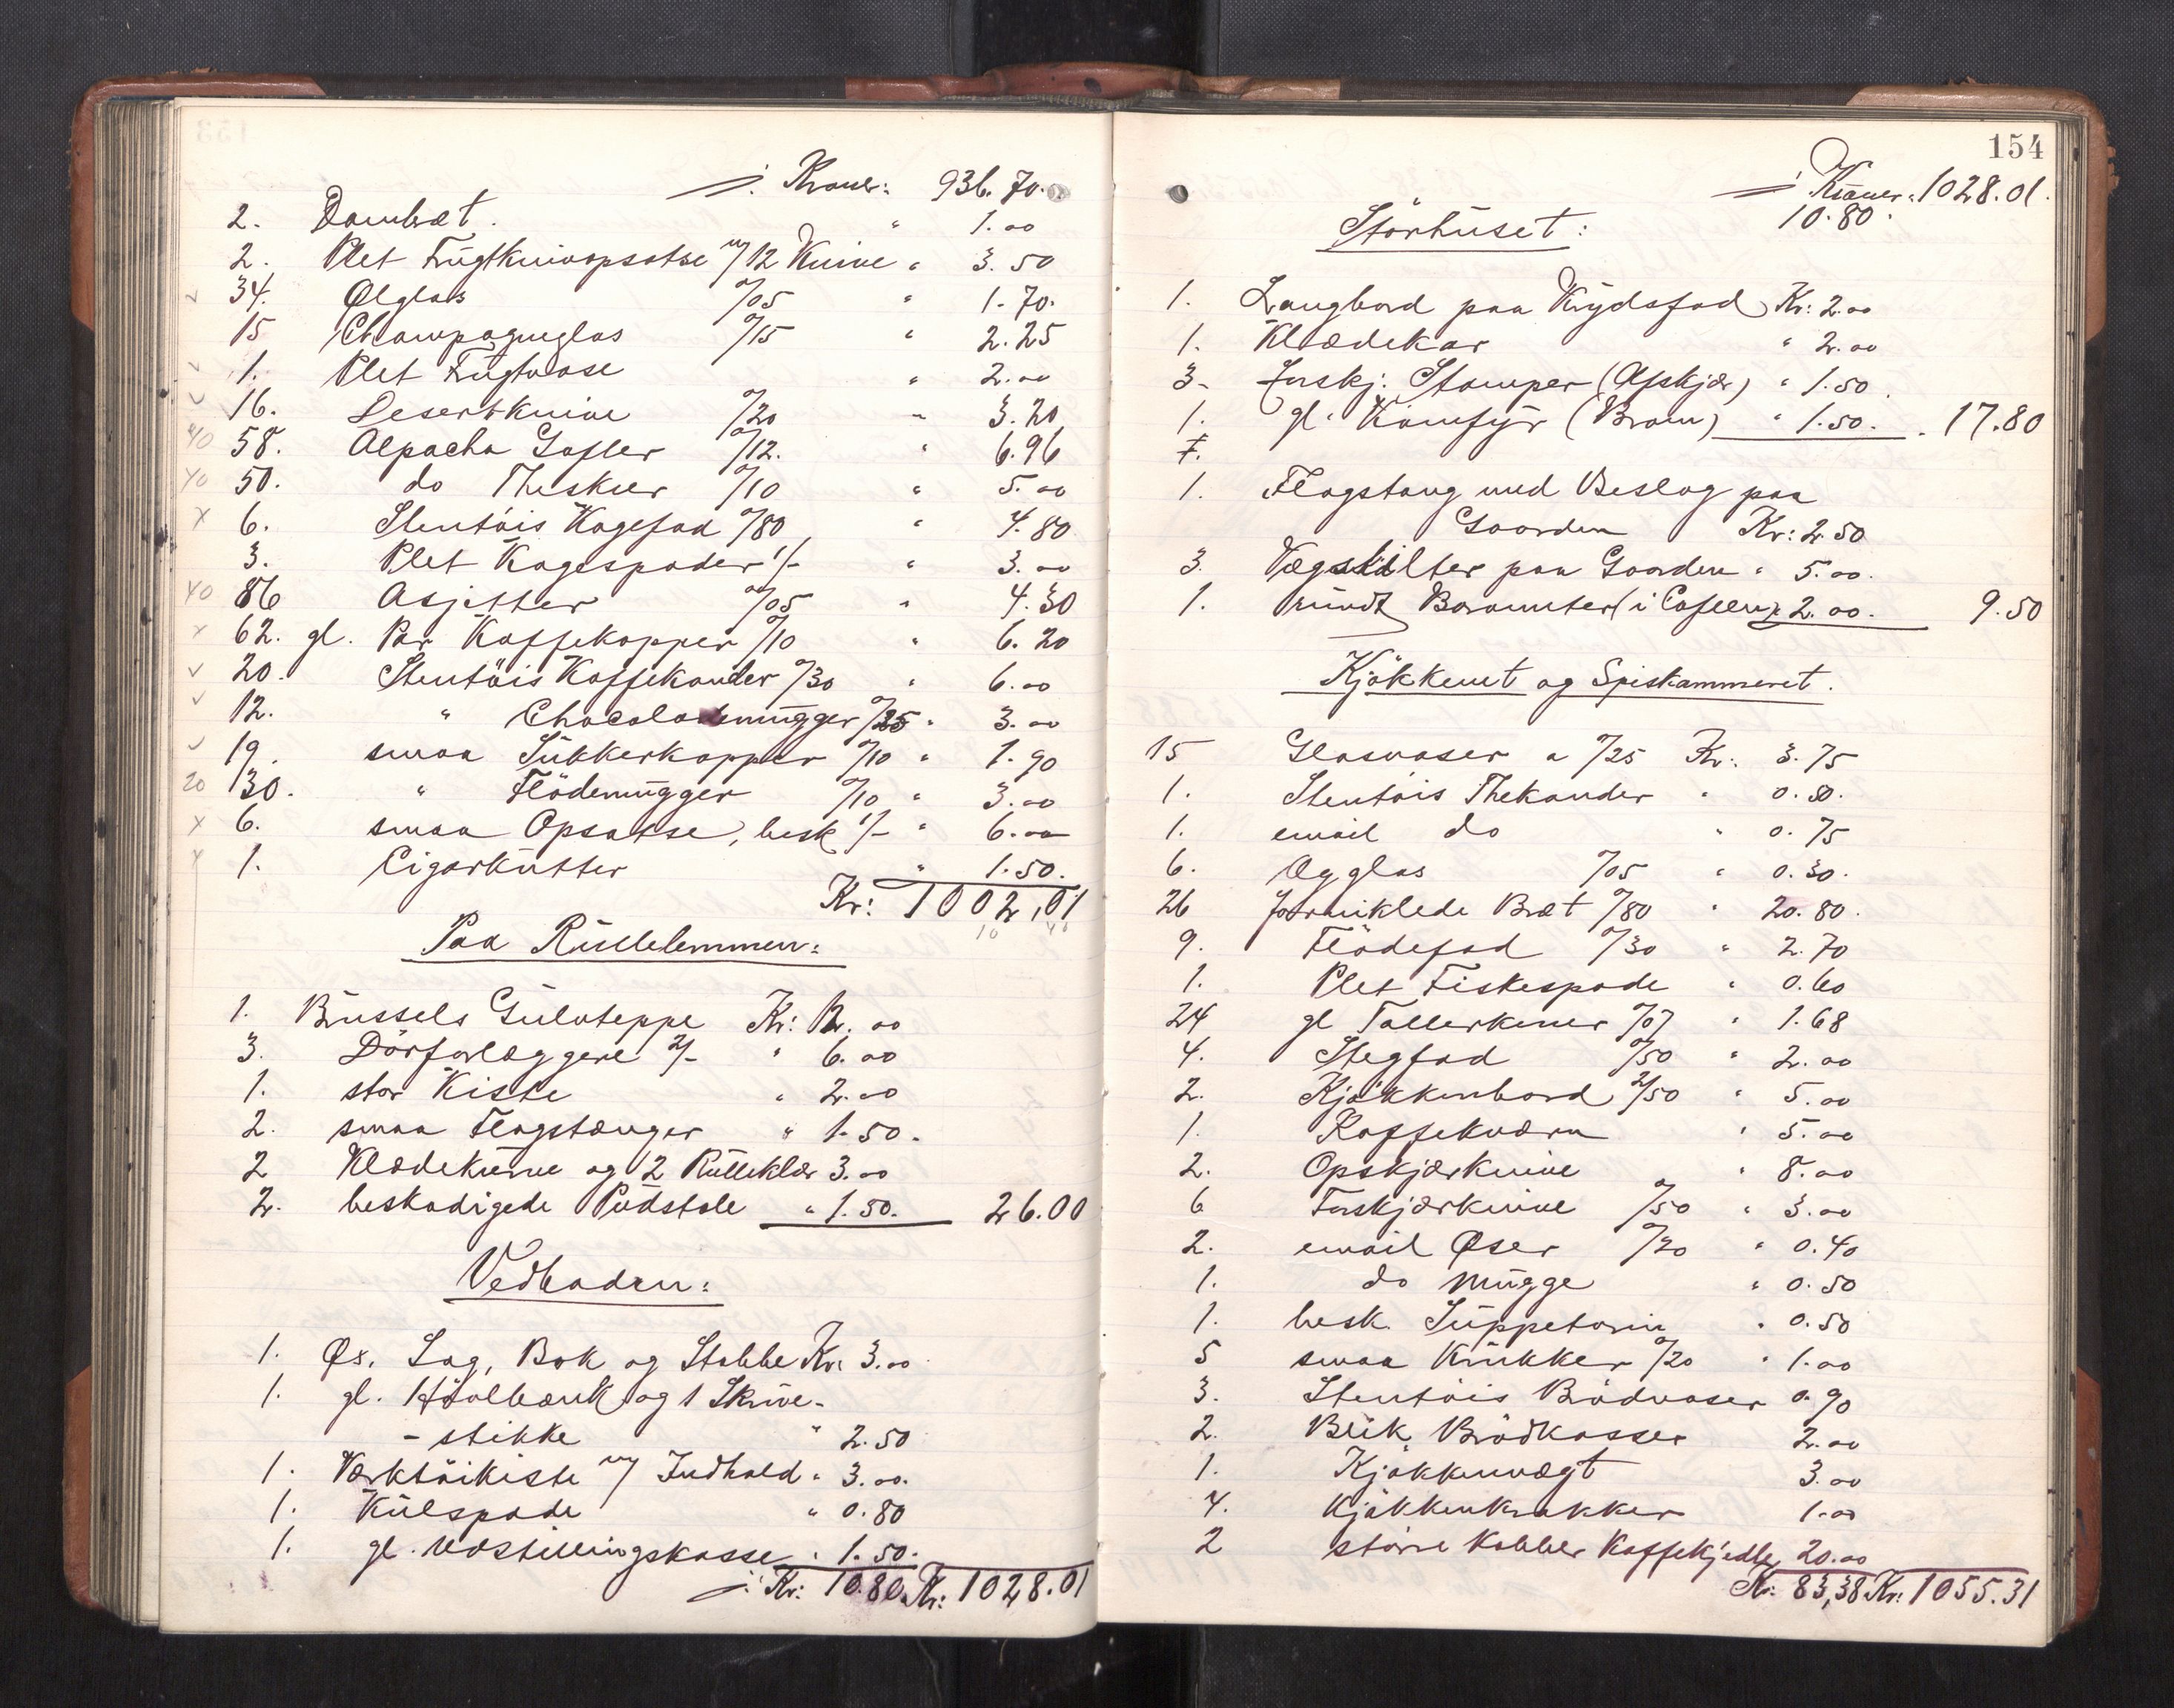 ·/· Kroner: 936.70.
2. Dambræt. " 1.00
2. Plet Frugtknivopsatse m/12 Knive " 3.50
34. Ølglas º/05 " 1.70.
15 Champagneglas º/15 " 2.25
1. Plet Frugtvase " 2.00
16. Desertknive º/20 " 3.20
40 58. Alpacha Gafler º/12. " 6.96
40 50. do Theskeer º/10 " 5.00
x 6. Stentöis Kagefad º/80 " 4.80
3. Plet Kagespader 1/- " 3.00
40 86 Asjetter º/05 " 4.30
x 62. gl. Par Kaffekopper º/10 " 6.20
20. Stentöis Kaffekander º/30 " 6.00
12. " Chocolademugger º/25 " 3.00
19. smaa Sukkerkopper º/10 " 1.90
20 30. " Flödemugger º/10 " 3.00
x 6. smaa Opsatse, besk 1/- " 6.00
x 1. Cigarkutter " 1.50.
Kr: 1002,01
Paa Rullelemmen:
1. Brussels Gulvteppe Kr: 12.00
3. Dörforlæggere 2/- " 6.00
1. stor Kiste " 2.00
2. smaa Flagstænger " 1.50.
2 Klædekurve og 2 Rulleklær 3.00
2. beskadigede Pudstole " 1.50. 26.00
Vedboden:
1. Øx, Sag, Buk og Stabbe Kr: 3.00
1. gl. Hövlbænk og 1 Skrue-
- stikke " 2.50
1. Værktöikiste m/ Indhold " 3.00.
1. Kulspade " 0.80
1. gl. Udstillingskasse " 1.50.
·/· Kr: 10.80. Kr: 1028.01
154
·/· Kroner: 1028.01.
10.80.
Störhuset:
1. Langbord paa Krydsfod Kr: 2.00
1. Klædekar " 2.00
3- forskj. Stamper (Afskjær) " 1.50.
1. gl. Komfyr (Bram) " 1.50. . 17.80
7.
1. Flagstang med Beslag paa
Gaarden Kr: 2.50
3. Vægskilter paa Gaarden " 5.00.
1. rundt Barometer (i Cafeen) 2.00. 9.50
Kjökkenet og Spiskammeret.
15 Glasvaser a º/25 Kr: 3.75
1. Stentöis Thekander " 0.50.
1. email do " 0.75
6. Ægglas º/05 " 0.30.
26 forniklede Bræt º/80 " 20.80.
9. Flödefad º/30 " 2.70
1. Plet Fiskespade " 0.60
24 gl Tallerkener º/07 " 1.68
4. Stegfad º/50 " 2.00
2. Kjökkenbord 2/50 " 5.00
1. Kaffekværn " 5.00
2. Opskjærknive " 8.00
6 Forskjærknive º/50 " 3.00
2. email Øser º/20 " 0.40
1. do Mugge " 0.50
1. besk Suppeterin " 0.50
5 smaa Krukker º/20 " 1.00
3. Stentöis Brödvaser 0.90
2. Blik Brödkasser 2.00
1. Kjökkenvægt 3.00
4. Kjökkenkrakker 1.00
2 större Kobber Kaffekjedle 20.00
Kr: 83,38 Kr: 1055.31